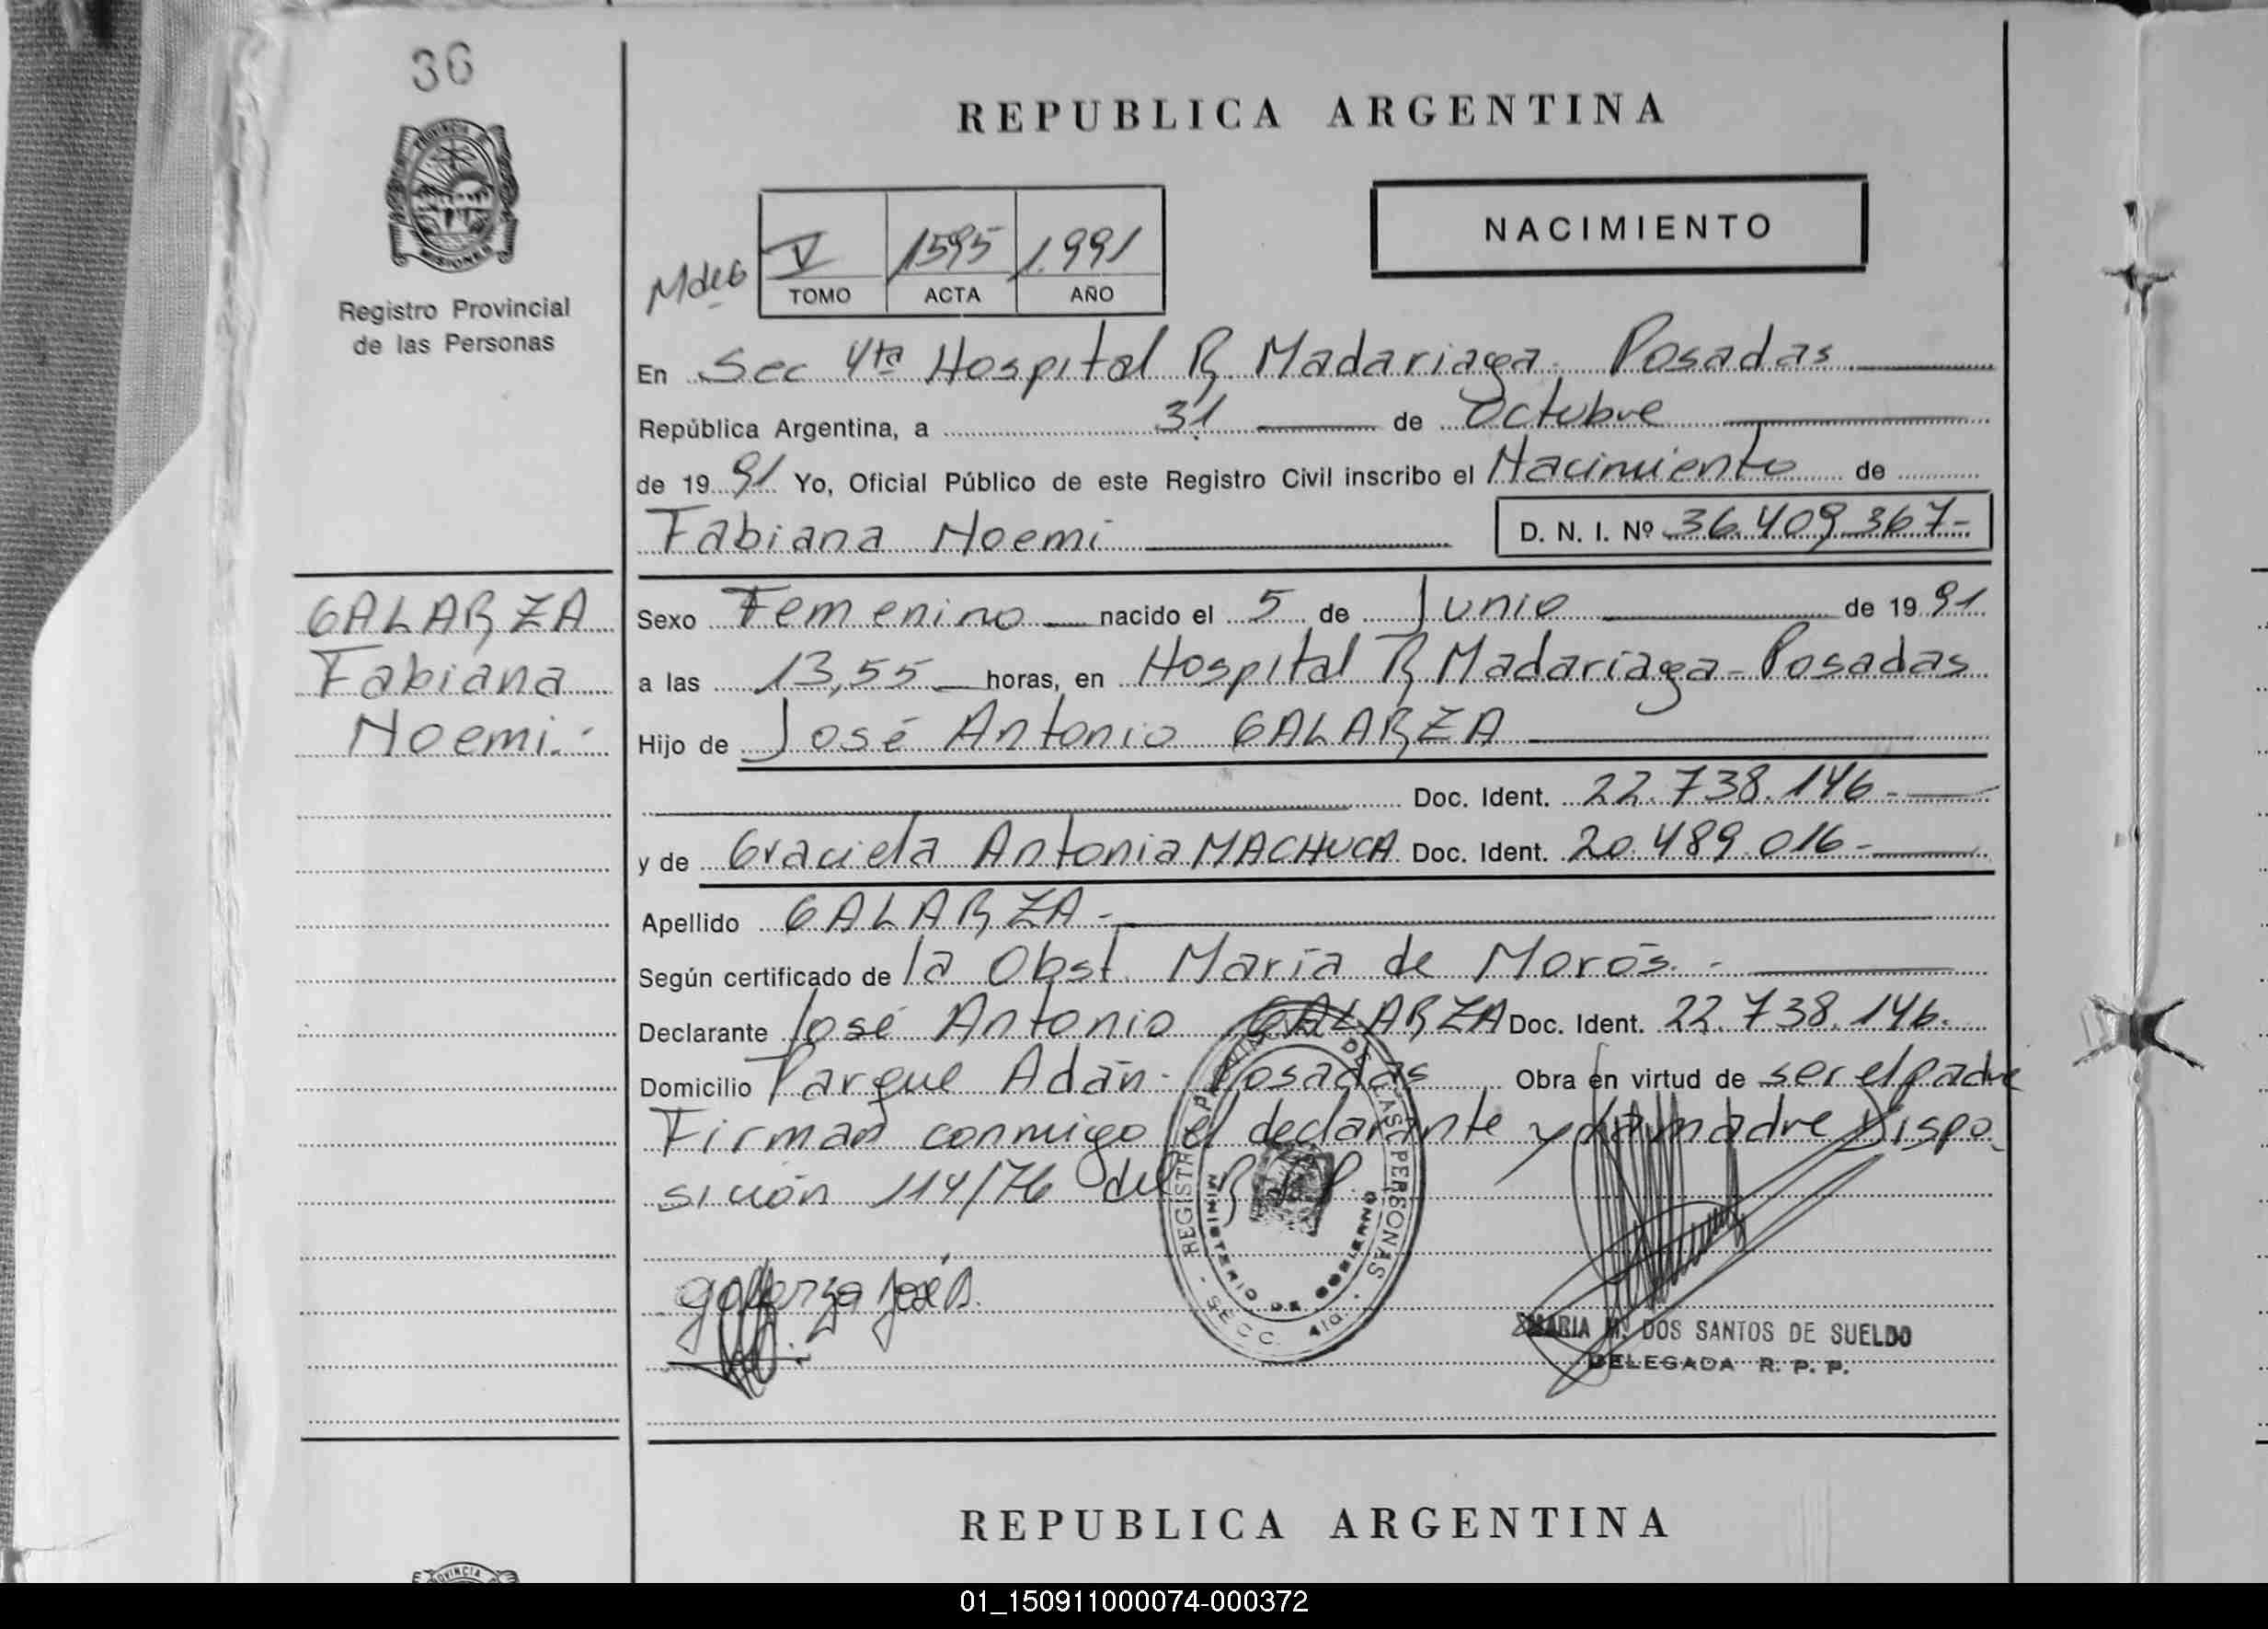 36
PROVINCIA
MISIONES
Registro Provincial
de las Personas
REPUBLICA ARGENTINA
NACIMIENTO
V 1595 1.991
TOMO ACTA AÑO
En Sec 4ta Hospital R Madariaga Posadas
República Argentina, a 31 de Octubre
de 19 91 Yo, Oficial Público de este Registro Civil inscribo el Nacimiento de
Fabiana Noemi D. N. I. Nº 36.409.367-
GALARZA
Fabiana
Noemi.-
Sexo Femenino nacido el 5 de Junio de 19 91
a las 13,55 horas, en Hospital R Madariaga - Posadas
Hijo de José Antonio GALARZA
Doc. Ident. 22.738.146-
y de Graciela Antonia MACHUCA Doc. Ident. 20.489.016-
Apellido GALARZA-
Según certificado de la Obst. María de Morós.-
Declarante José Antonio GALARZA Doc. Ident. 22.738.146.
Domicilio Parque Adán- Posadas Obra en virtud de ser el padre
Firman conmigo el declarante y la madre Dispo
sición 114/76 del
REGISTRO PROVINCIAL DE LAS PERSONAS - SECC. 4ta. -
MINISTERIO DE GOBIERNO
MARIA M. DOS SANTOS DE SUELDO
DELEGADA R. P. P.
REPUBLICA ARGENTINA
01_150911000074-000372